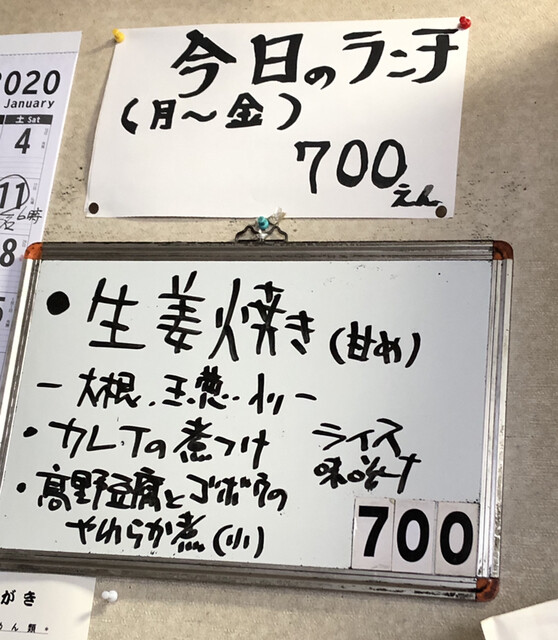 2020
January
土 Sat
4
11
6時
今日のランチ
(月〜金)
700えん
・生姜焼き(甘め)
ー大根.玉葱..
・カレイの煮つけ
・高野豆腐とゴボウの
やわらか煮(小)
ライス
味噌汁
700
がき